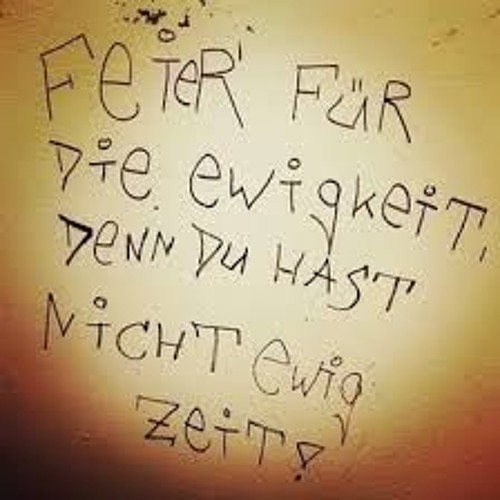 FeieR FÜR
Die ewigkeiT,
DeNN Du HAST
NiCHT ewig
ZeiT!